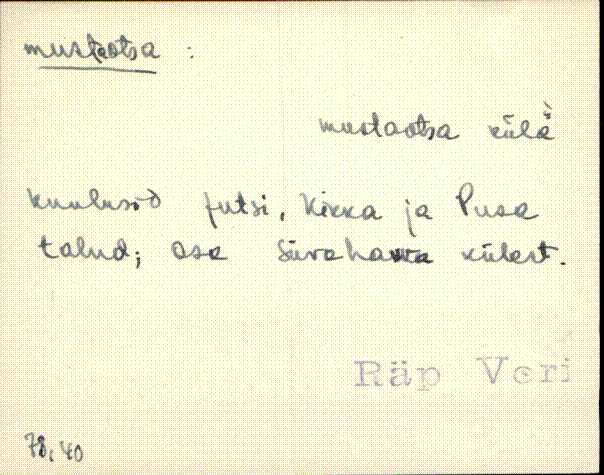 mustaotsa :
mustaotsa külä
kuulusid Jutsi, Kikka ja Pusa
talud; osa Süvahavva külast.
Räp Veri
78, 40